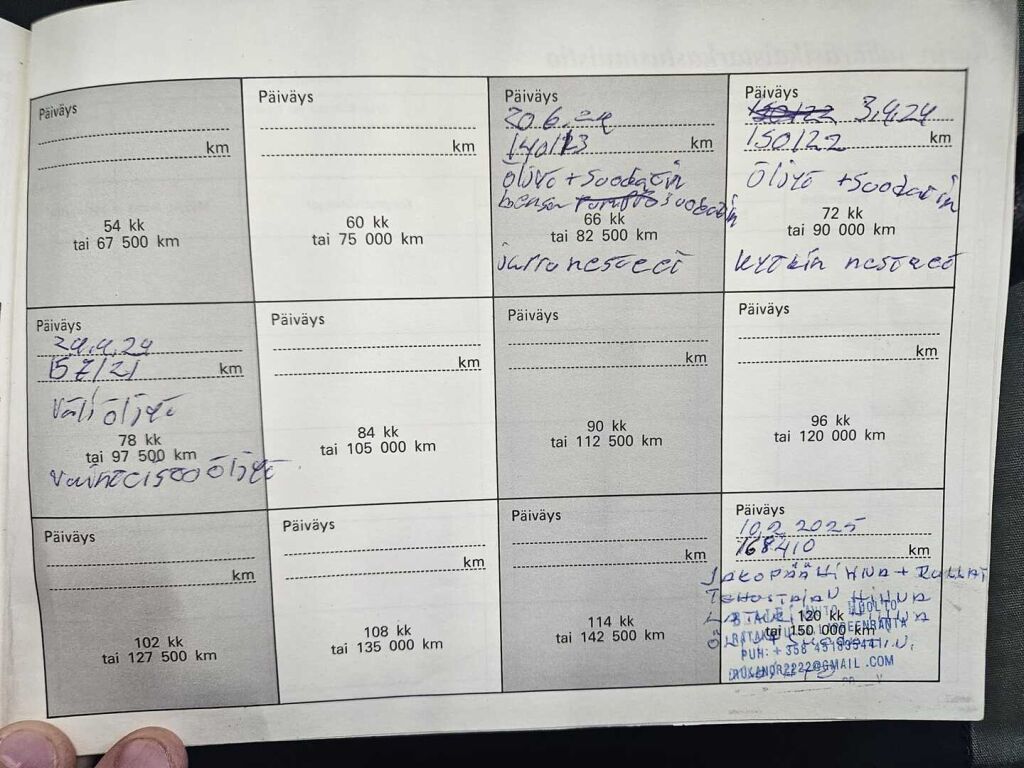 Päiväys
km
54 kk
tai 67 500 km
Päiväys
km
60 kk
tai 75 000 km
Päiväys
20.6.
140113 km
Öljyt + Suodatin
bensan suodatin
66 kk
tai 82 500 km
Jarru nesteet
Päiväys
3.4.24
150122 km
Öljyt + Suodatin
72 kk
tai 90 000 km
kytkin nesteet
Päiväys
24.4.24
157121 km
Väli öljyt
78 kk
tai 97 500 km
Vaihteisto öljyt
Päiväys
km
84 kk
tai 105 000 km
Päiväys
km
90 kk
tai 112 500 km
Päiväys
km
96 kk
tai 120 000 km
Päiväys
km
102 kk
tai 127 500 km
Päiväys
km
108 kk
tai 135 000 km
Päiväys
km
114 kk
tai 142 500 km
Päiväys
10.2.2025
168410 km
JAKOPÄÄHIHNA + RULLAT
TEHOSTAJAN HIHNA
HIHNA
120 kk
tai 150 000 km
LAPPEENRANTA
PUH: + 358
@GMAIL .COM